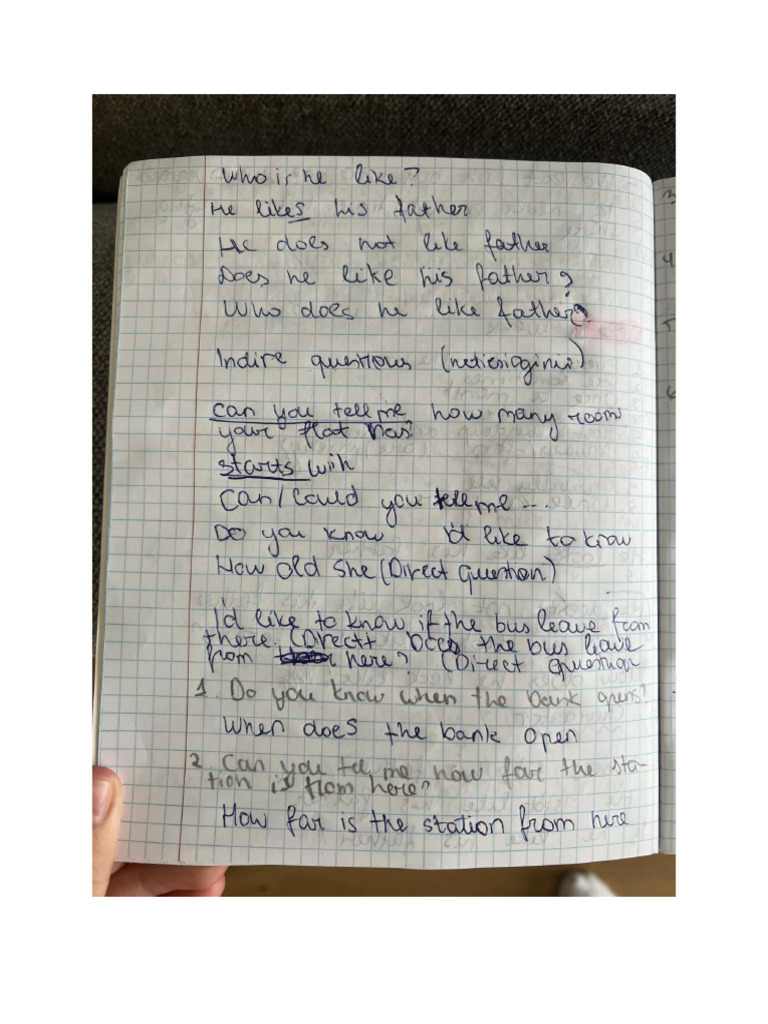 Who is he like?
He likes his father
He does not like father
Does he like his father?
Who does he like father?
Indire questions (netiesioginiai)
can you tell me how many room
your flat has?
starts wih
Can/Could you tell me ...
Do you know I'd like to know
How old she (Direct question)
I'd like to know if the bus leave from
there. (Direct Does the bus leave
from here? (Direct question
1 Do you know when the bank opens?
When does the bank open
2 Can you tell me how far the sta-
tion is from here?
How far is the station from here
3
4
5
6